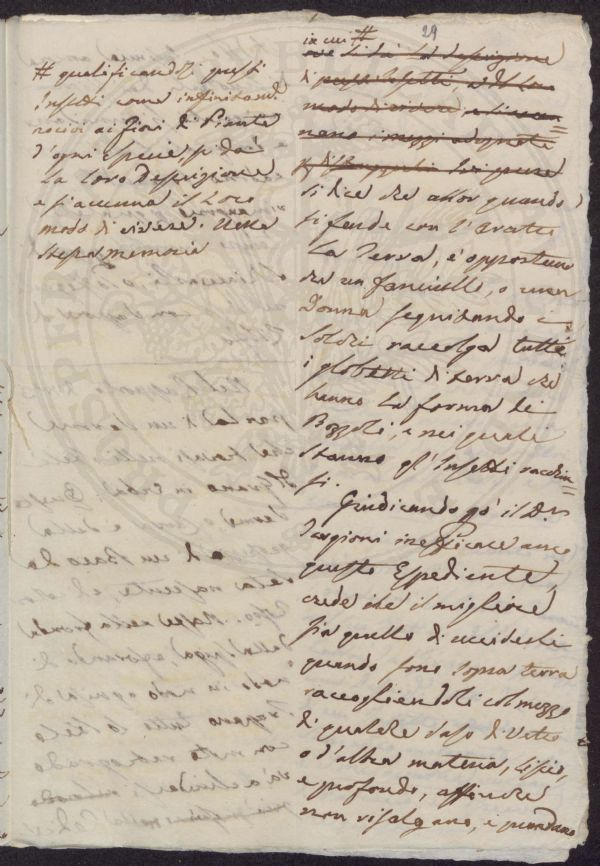 29
# qualificandosi questi
Insetti come infinitamte
nocivi ai fiori di Piante
d'ogni specie, si dà
la loro Descrizione
e s'accenna il loro
modo di vivere. Nella
stessa memoria
in cui #
si dà la descrizione
di questi Insetti, e del loro
modo di vivere e si accen=
nano i mezzi adoperati
si dice che allor quando
si fende con l'Aratro
la Terra, è opportuno
che un fanciullo, o una
Donna seguitando i
solchi raccolga tutti
i globetti di terra che
hanno la forma di
Bozzoli, e nei quali
stanno gl'Insetti racchiu=
si.
Giudicando però il Dr
Targioni inefficace anco
questo Espediente,
crede che il migliore
sia quello di ucciderli
quando sono sopra terra
raccogliendoli col mezzo
di qualche vaso di Vetro
o d'altra materia, liscio,
e profondo, affinché
non risalgano, e quando